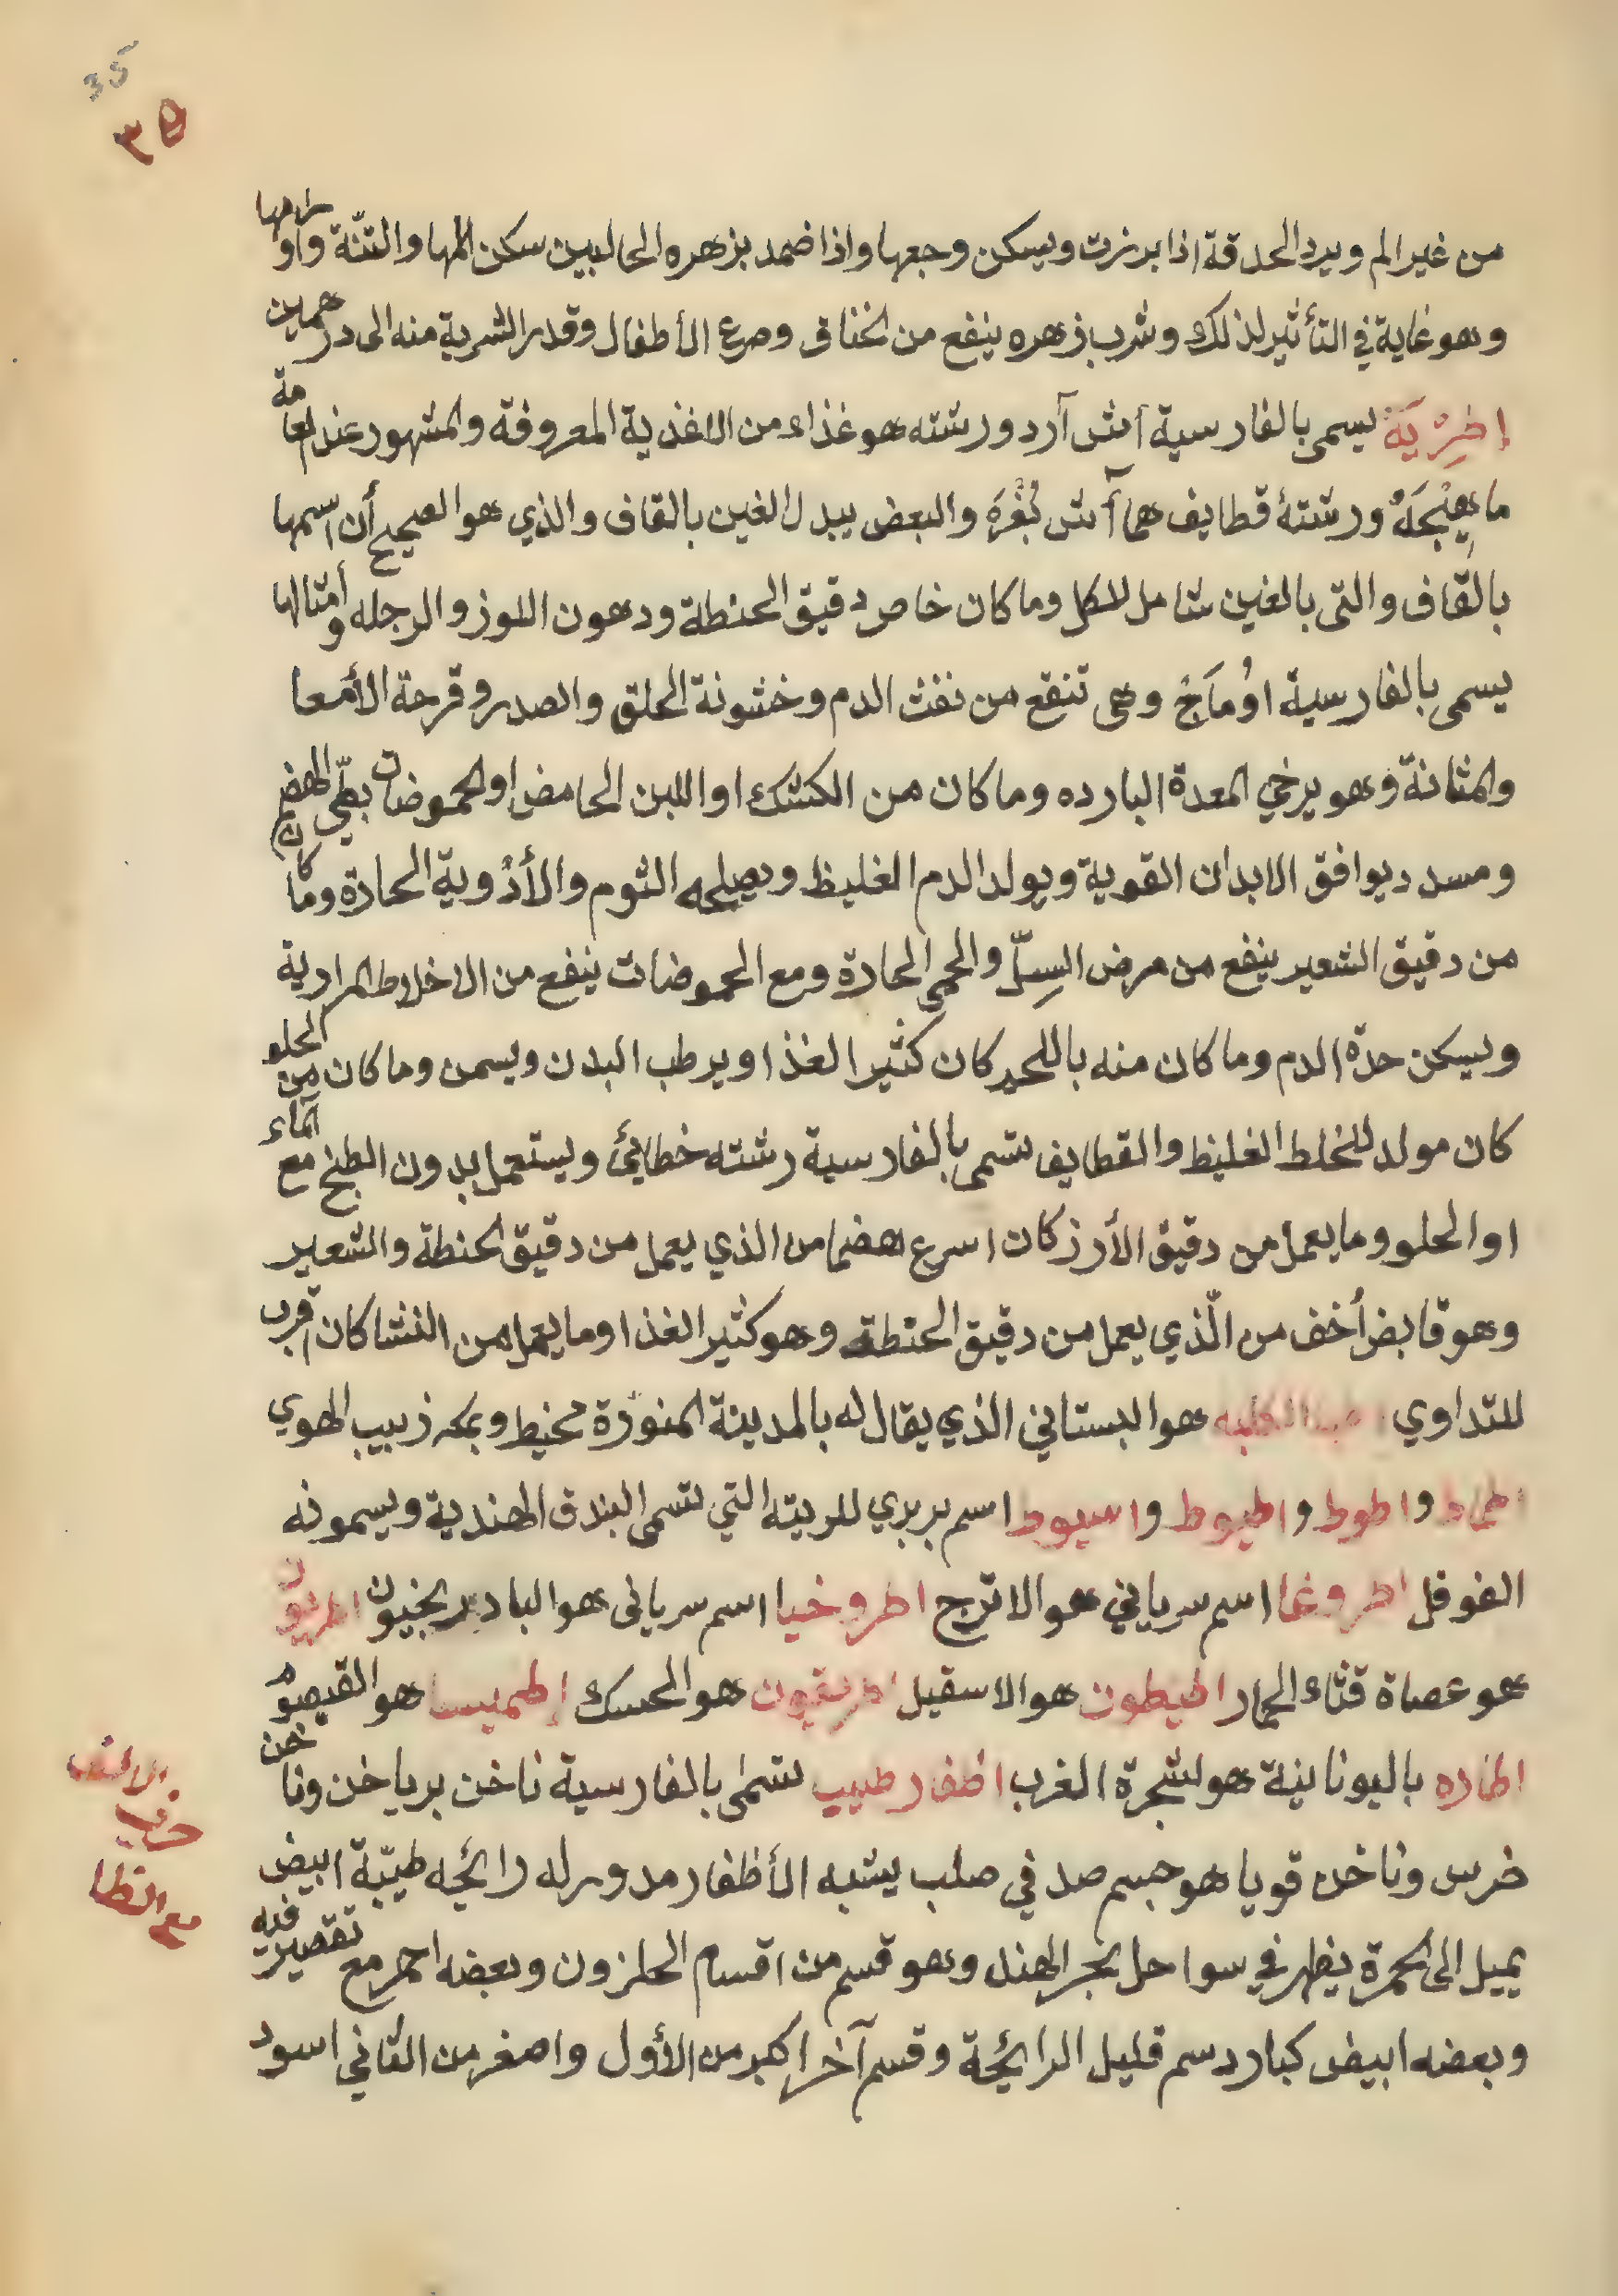 35
٣٥
من غير الم ويرد الحدقة اذا برزت ويسكن وجعها واذا ضمد بزهره الحالبين سكن المها والثنّة واورامها
وهو غاية في التأثير لذلك وشرب زهره ينفع من الخناق وصرع الأطفال وقدر الشربة منه الى درهمين
إطرِيَة يسمى بالفارسية آش آرد ورشته هو غذاء من الاغذية المعروفة والمشهور عند العامة
ماهِيْجَهْ ورشتهٔ قطايف هما آش بُغْرَه والبعض يبدل الغين بالقاف والذي هو الصحيح أن اسمها
بالقاف والتى بالغين شامل للكل وما كان خاص دقيق الحنطة ودهون اللوز والرجله وأمثالها
يسمى بالفارسية اوُمَاجْ وهى تنقع من نفث الدم وخشونة الحلق والصدر وقرحة الأمعا
والمثانة وهو يرخي المعدة البارده وما كان من الكشك او اللبن الحامض او الحموضات بطّي الهضم
ومسدد يوافق الابدان القوية ويولد الدم الغليظ ويصلحه الثوم والأدوية الحادة وما كان
من دقيق الشعير ينفع من مرض السِلّ والحمى الحادة ومع الحموضات ينفع من الاخلاط المرارية
ويسكن حدّة الدم وما كان منه باللحم كان كثير الغذا ويرطب البدن ويسمن وما كان من الحلو
كان مولد للخلط الغليظ والقطايف تسمى بالفارسية رشته خطايئ ويستعمل بدون الطبخ مع الماء
او الحلو وما يعمل من دقيق الأرز كان اسرع هضما من الذي يعمل من دقيق الحنطة والشعير
وهو قابض أخف من الّذي يعمل من دقيق الحنطة وهو كثير الغذا وما يعمل من النشا كان اقرب
للتداوي اطبا الكلبه هو البستاني الذي يقال له بالمدينة المنورة مخيط وبمكه زبيب الهوي
اطماط واطوط واطيوط واسيوط اسم بربري للربته التي تسمى البندق الهندية ويسمونه
الفوفل اطروغا اسم سرياني هو الاترج اطروخيا اسم سريانى هو البادرنجنيون اطريون
هو عصاة قثاء الحمار اطيطون هو الاسقيل اطريقون هو الحسك إطميسا هو القيصوم
اطاره باليونانية هو لشجرة الغرب اظفار طيب تسمٰى بالفارسية ناخن برياخن وناخن
خرس وناخن قويا هو جسم صدفي صلب يشبه الأظفار مدور له رائحه طيبّة ابيض
يميل الى الحمرة يظهر في سواحل بحر الهند وهو قسم من اقسام الحلزون وبعضه احمر مع تقصير فيه
وبعضه ابيض كبار دسم قليل الرائحة وقسم آخر اكبر من الأول واصغر من الثاني اسود
الالف
حرف
مع الظا